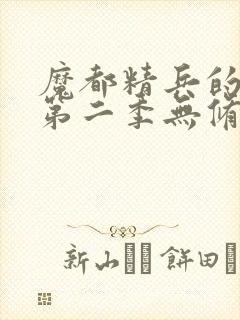 魔都精兵的
第二季無脩
新山 餅田